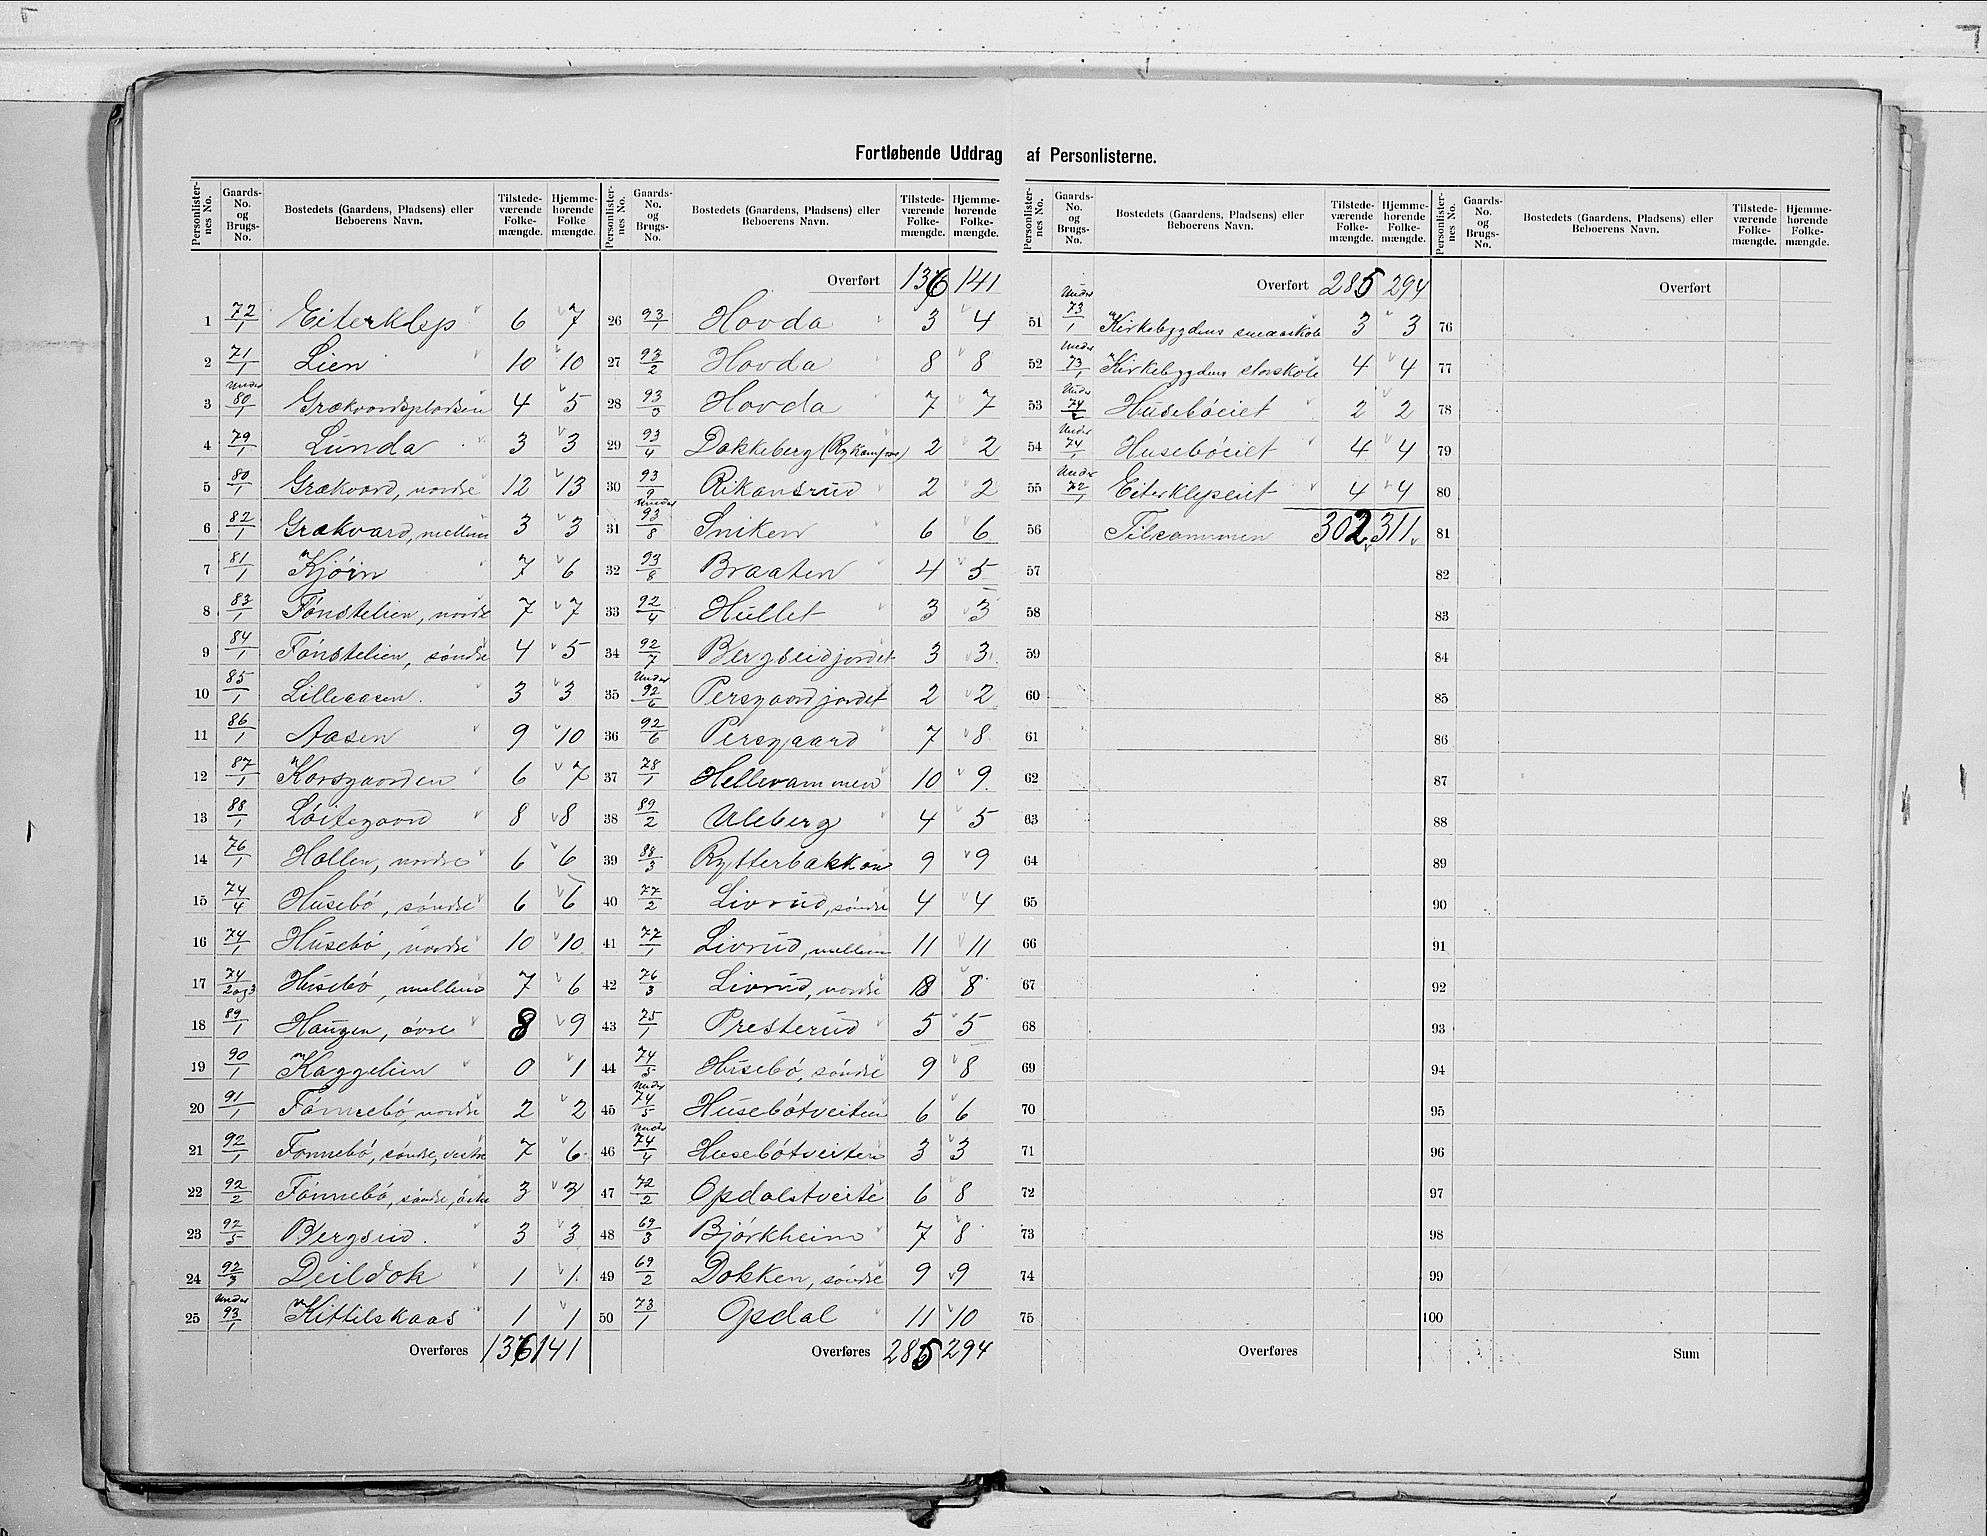 Fortløbende Uddrag af Personlisterne.
Personlister-nes No. | Gaards-No. og Brugs-No. | Bostedets (Gaardens, Pladsens) eller Beboerens Navn. | Tilstede-værende Folke-mængde. | Hjemme-hørende Folke mængde.
1 | 72/1 | Eiterklep | 6 | 7
2 | 71/1 | Lien | 10 | 10
3 | Under 80/1 | Grækvordspladsen | 4 | 5
4 | 79/1 | Lunda | 3 | 3
5 | 80/1 | Grækvord, nordre | 12 | 13
6 | 82/1 | Grækvard, mellem | 3 | 3
7 | 81/1 | Kjørn | 7 | 6
8 | 83/1 | Fønstelien, nordre | 7 | 7
9 | 84/1 | Fønstelien, søndre | 4 | 5
10 | 85/1 | Lilleaasen. | 3 | 3
11 | 86/1 | Aasen | 9 | 10
12 | 87/1 | Korsgaarden | 6 | 7
13 | 88/1 | Løitegaard | 8 | 8
14 | 76/1 | Hallen, nordre | 6 | 6
15 | 74/4 | Husebø, søndre | 6 | 6
16 | 74/1 | Husebø, nordre | 10 | 10
17 | 74/2og3 | Husebø, mellem | 7 | 6
18 | 89/1 | Haugen, øvre | 8 | 9
19 | 90/1 | Kaggelien | 0 | 1
20 | 91/1 | Fønnebø, nordre | 2 | 2
21 | 92/1 | Fønnebø, søndre, vestre | 7 | 6
22 | 92/2 | Fønnebø, søndre, østre | 3 | 3
23 | 92/5 | Bergsud. | 3 | 3
24 | 92/3 | Deildok | 1 | 1
25 | Under 93/1 | Kittilskaas | 1 | 1
Overføres 136 141
Personlister-nes No. | Gaards-No. og Brugs-No. | Bostedets (Gaardens, Pladsens) eller Beboerens Navn. | Tilstede-værende Folke-mængde. | Hjemme-hørende Folke-mængde.
Overført 136 141
26 | 93/1 | Hovda | 3 | 4
27 | 93/2 | Hovda | 8 | 8
28 | 93/3 | Hovda | 7 | 7
29 | 93/4 | Dokkeberg | 2 | 2
30 | 93/9 | Rikansrud | 2 | 2
31 | Under 93/8 | Sniken | 6 | 6
32 | 93/8 | Braaten | 4 | 5
33 | 92/4 | Hullet | 3 | 3
34 | 92/7 | Bergseidjordet | 3 | 3
35 | Under 92/6 | Persgaardjordet | 2 | 2
36 | 92/6 | Persgaard | 7 | 8
37 | 78/1 | Hellevammen | 10 | 9
38 | 89/2 | Uleberg | 4 | 5
39 | 88/3 | Rytterbakken | 9 | 9
40 | 77/2 | Livrud, søndre | 4 | 4
41 | 77/1 | Livrud, mellem | 11 | 11
42 | 76/3 | Livrud, nordre | 8 | 8
43 | 75/1 | Presterud | 5 | 5
44 | 74/5 | Husebø, søndre | 9 | 8
45 | Under 74/5 | Husebøtveiten | 6 | 6
46 | Under 74/4 | Husebøtveiten | 3 | 3
47 | 72/2 | Opdalstveite | 6 | 8
48 | 69/3 | Bjørkheim | 7 | 8
49 | 69/2 | Dokken, søndre | 9 | 9
50 | 73/1 | Opdal | 11 | 10
Overføres 285 294
Personlister-nes No. | Gaards-No. og Brugs-No. | Bostedets (Gaardens, Pladsens) eller Beboerens Navn. | Tilstede-værende Folke-mængde. | Hjemme-hørende Folke-mængde.
Overført 285 294
51 | Under 73/1 | Kirkebygdens smaaskole | 3 | 3
52 | Under 73/1 | Kirkebygdens storskole | 4 | 4
53 | Under 74/2 | Husebøeiet | 2 | 2
54 | Under 74/1 | Husebøeiet | 4 | 4
55 | Under 72/1 | Eiterklepeiet | 4 | 4
56 | Tilsammen | 302 | 311
57
58
59
60
61
62
63
64
65
66
67
68
69
70
71
72
73
74
75
Overføres
Personlister-nes No. | Gaards-No. og Brugs-No. | Bostedets (Gaardens, Pladsens) eller Beboerens Navn. | Tilstede-værende Folke-mængde. | Hjemme-hørende Folke-mængde.
Overført
76
77
78
79
80
81
82
83
84
85
86
87
88
89
90
91
92
93
94
95
96
97
98
99
100
Sum